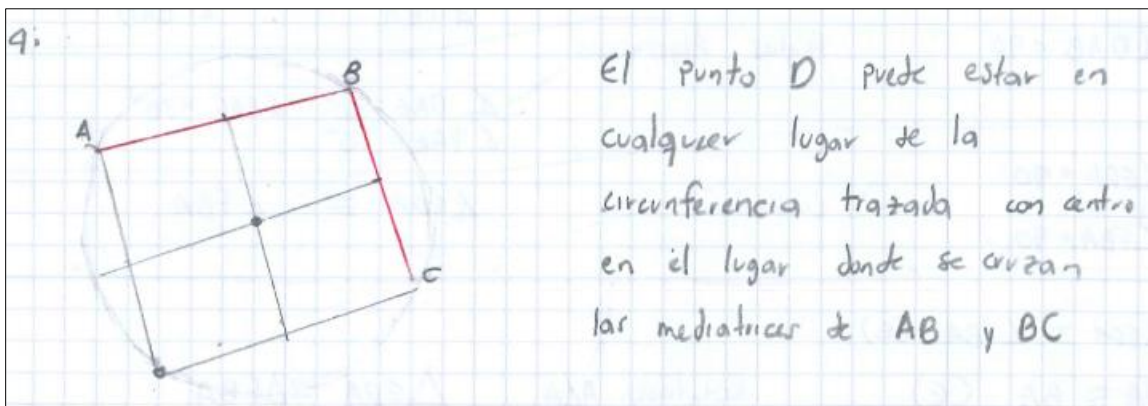 9:
A
B
C
El punto D puede estar en
cualquier lugar de la
circunferencia trazada con centro
en el lugar donde se cruzan
las mediatrices de AB y BC